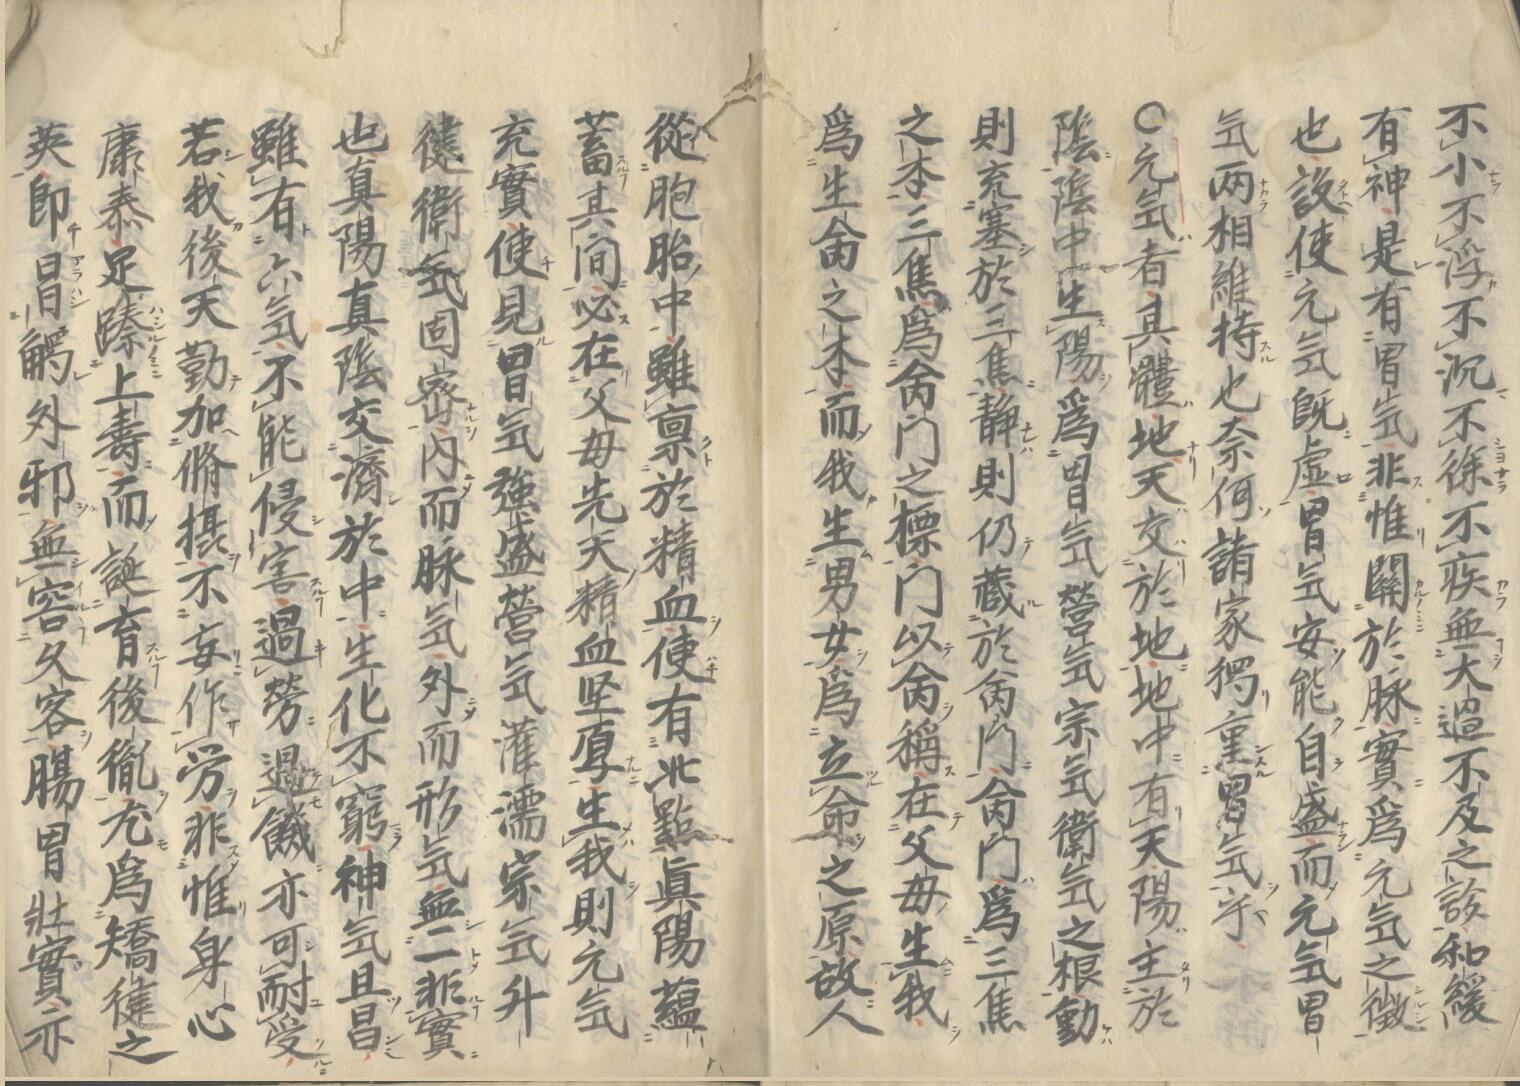 不小不浮不沉不徐不疾無大過不及之診和緩
有神是有胃气非惟關於脉實為元气之徵
也設使元气既虚胃气安能自盛而元气胃
气両相維持也奈何諸家獨重胃气乎
○元气者其體地天交於地地中有天陽主於
陰陰中生陽為胃气營气宗气衛气之根動
則充塞於三焦静則仍藏於命門命門為三焦
之本三焦為命門之標門以命稱在父母生我
為生命之本而我生男女為立命之原故人
從胞胎中雖禀於精血使有此點眞陽蘊
蓄其間必在父母先天精血坚厚生我則元气
充實使見胃气強盛營气灌濡宗气升
健衛气固密内而脉气外而形气無二非實
也真陽真陰交濟於中生化不窮神气且昌
雖有六气不能侵害過勞過饑亦可耐受
若我後天勤加脩摂不妄作労非惟身心
康泰足臻上壽而誕育後胤尤為矯健之
英即冒觸外邪無容久客腸胃壯實亦